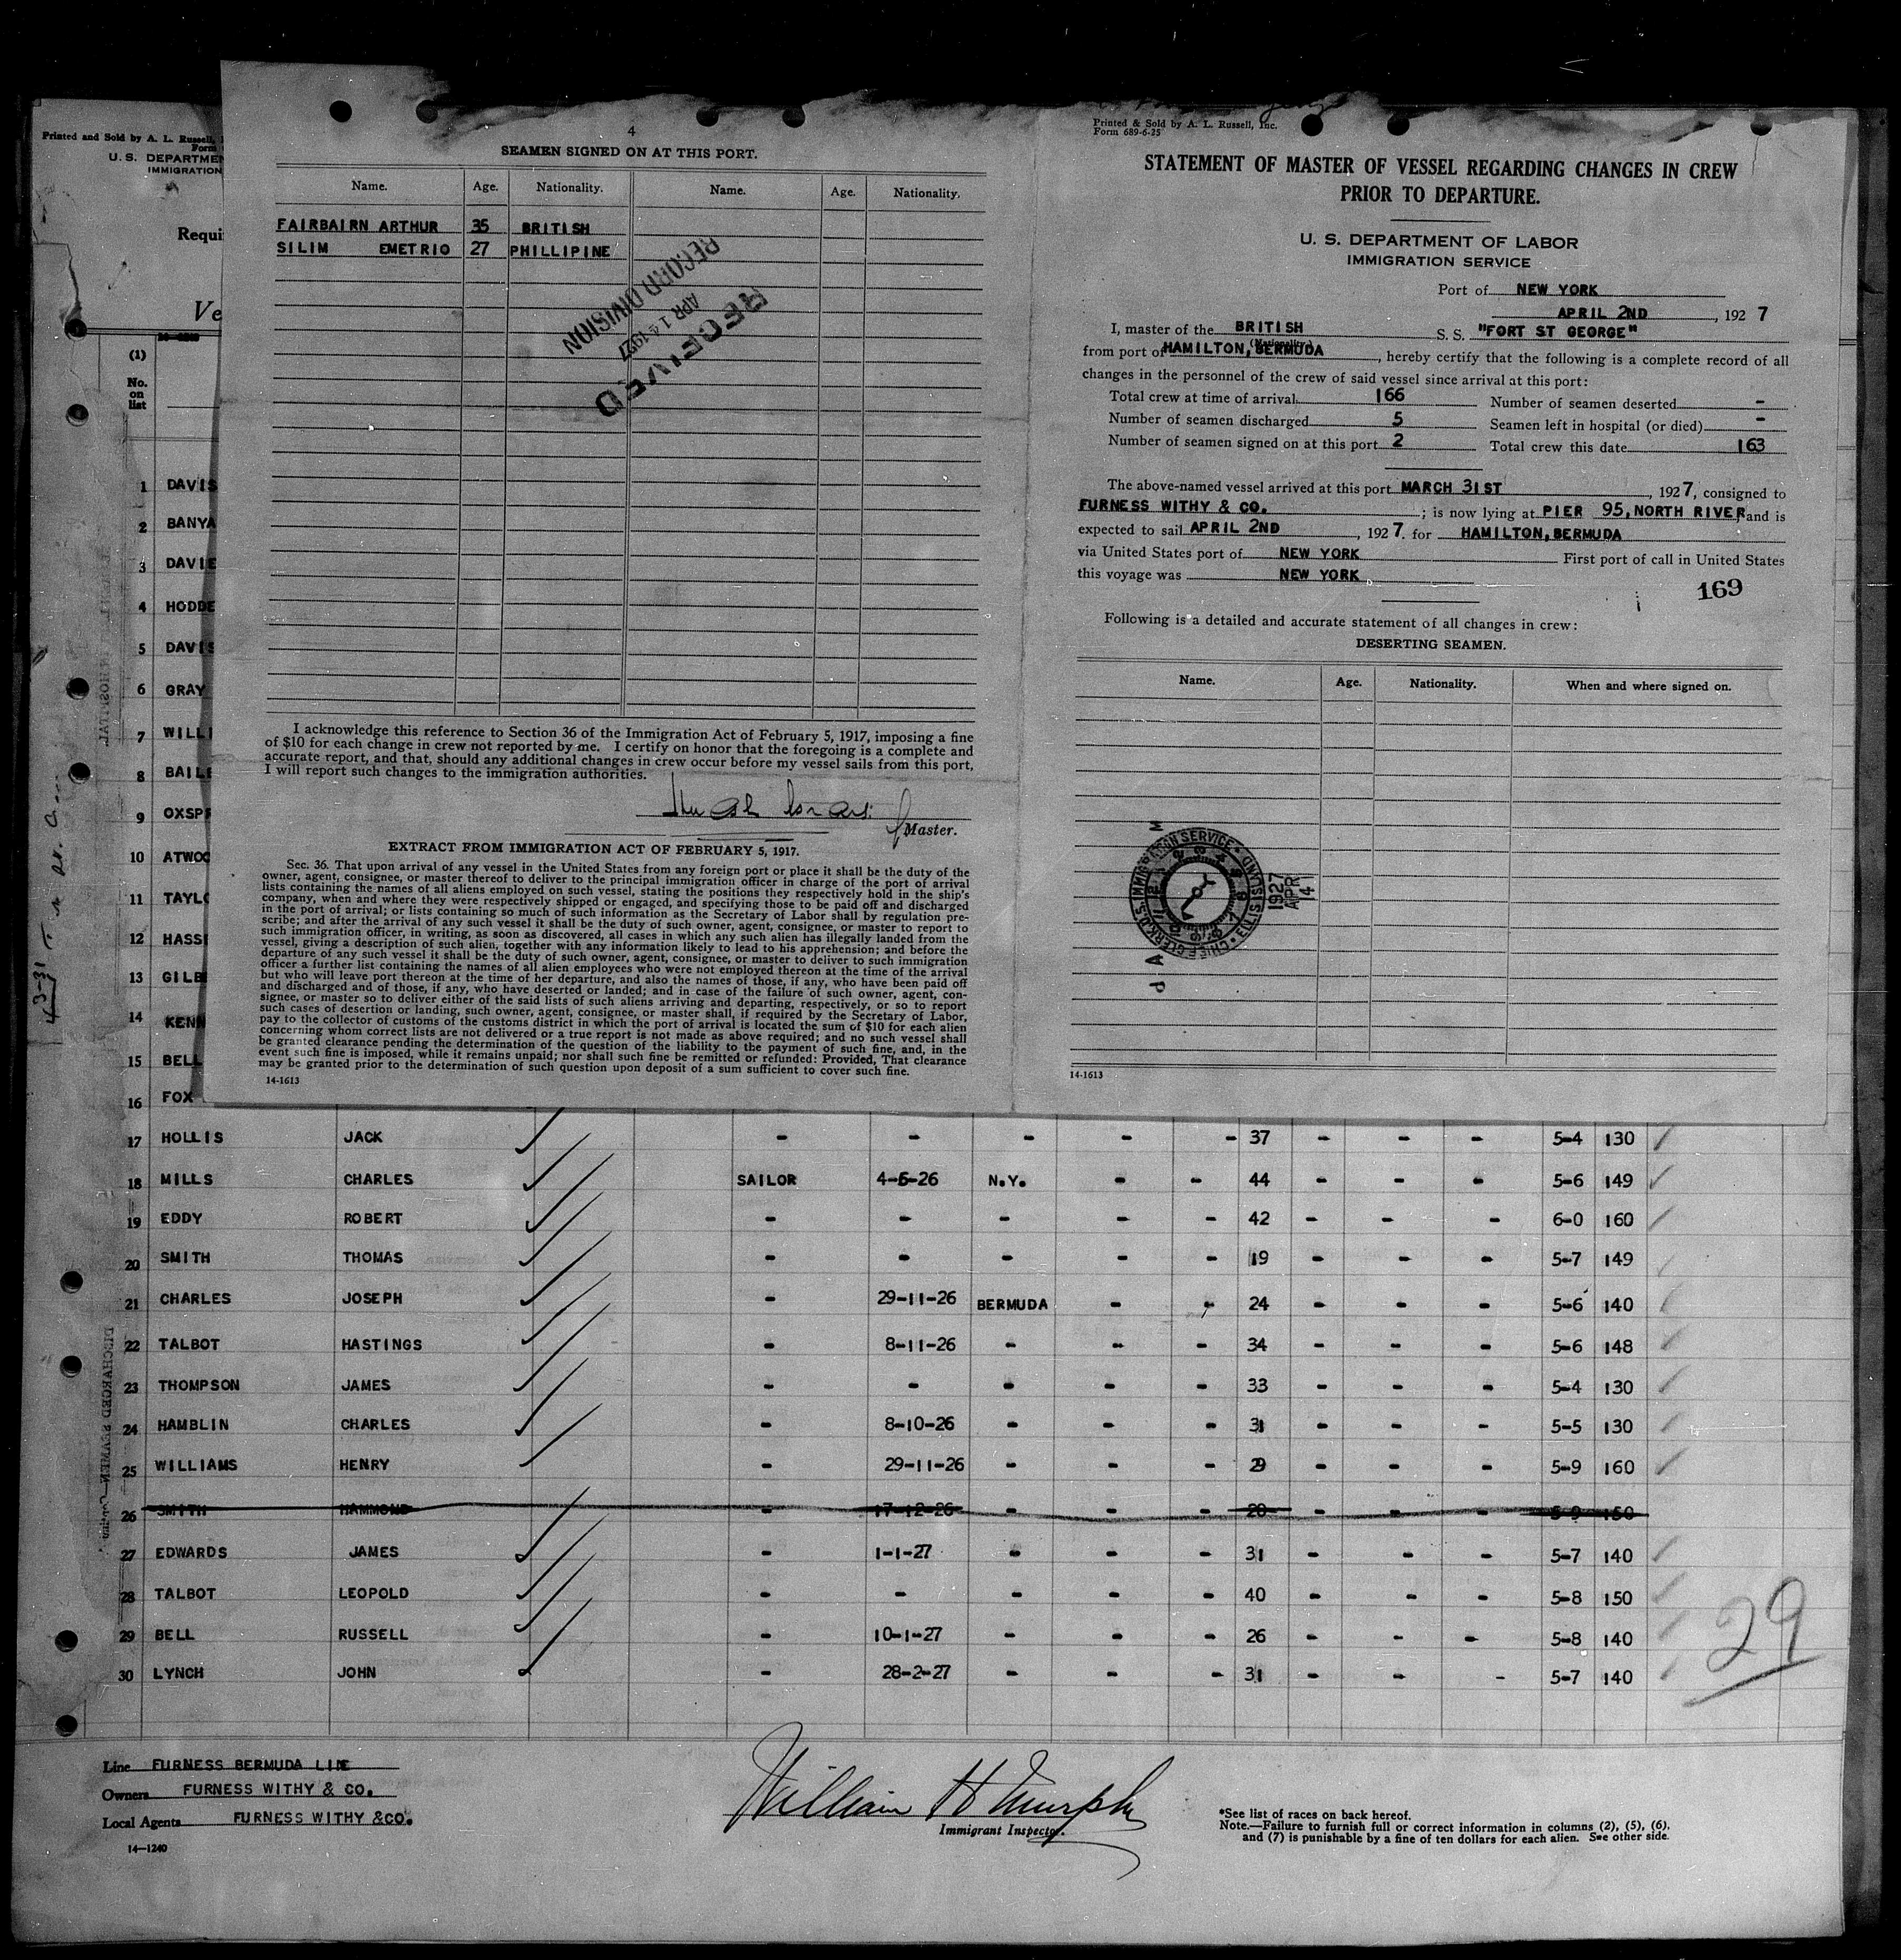 Printed and Sold by A. L. Russell,
Form
U. S. DEPARTME
IMMIGRATION
Requi
Ve
(1)
No.
on
list
1 DAVIS
2 BANYA
3 DAVIE
4 HODDE
5 DAVIS
6 GRAY
7 WILLI
8 BAILE
9 OXSP
10 ATWOO
11 TAYLO
12 HASS
13 GILB
14 KENN
15 BELL
16 FOX
4
SEAMEN SIGNED ON AT THIS PORT.
Name. Age. Nationality. Name. Age. Nationality.
FAIRBAIRN ARTHUR 35 BRITISH
SILIM EMETRIO 27 PHILLIPINE
RECEIVED
APR 14 1927
RECORD DIVISION
I acknowledge this reference to Section 36 of the Immigration Act of February 5, 1917, imposing a fine
of $10 for each change in crew not reported by me. I certify on honor that the foregoing is a complete and
accurate report, and that, should any additional changes in crew occur before my vessel sails from this port,
I will report such changes to the immigration authorities.
Master.
EXTRACT FROM IMMIGRATION ACT OF FEBRUARY 5, 1917.
Sec. 36. That upon arrival of any vessel in the United States from any foreign port or place it shall be the duty of the
owner, agent, consignee, or master thereof to deliver to the principal immigration officer in charge of the port of arrival
lists containing the names of all aliens employed on such vessel, stating the positions they respectively hold in the ship's
company, when and where they were respectively shipped or engaged, and specifying those to be paid off and discharged
in the port of arrival; or lists containing so much of such information as the Secretary of Labor shall by regulation pre-
scribe; and after the arrival of any such vessel it shall be the duty of such owner, agent, consignee, or master to report to
such immigration officer, in writing, as soon as discovered, all cases in which any such alien has illegally landed from the
vessel, giving a description of such alien, together with any information likely to lead to his apprehension; and before the
departure of any such vessel it shall be the duty of such owner, agent, consignee, or master to deliver to such immigration
officer a further list containing the names of all alien employees who were not employed thereon at the time of the arrival
but who will leave port thereon at the time of her departure, and also the names of those, if any, who have been paid off
and discharged and of those, if any, who have deserted or landed; and in case of the failure of such owner, agent, con-
signee, or master so to deliver either of the said lists of such aliens arriving and departing, respectively, or so to report
such cases of desertion or landing, such owner, agent, consignee, or master shall, if required by the Secretary of Labor,
pay to the collector of customs of the customs district in which the port of arrival is located the sum of $10 for each alien
concerning whom correct lists are not delivered or a true report is not made as above required; and no such vessel shall
be granted clearance pending the determination of the question of the liability to the payment of such fine, and, in the
event such fine is imposed, while it remains unpaid; nor shall such fine be remitted or refunded: Provided, That clearance
may be granted prior to the determination of such question upon deposit of a sum sufficient to cover such fine.
14-1613
Printed & Sold by A. L. Russell, Inc.
Form 689-6-25
STATEMENT OF MASTER OF VESSEL REGARDING CHANGES IN CREW
PRIOR TO DEPARTURE.
U. S. DEPARTMENT OF LABOR
IMMIGRATION SERVICE
Port of NEW YORK
APRIL 2ND, 1927
I, master of the BRITISH S. S. "FORT ST GEORGE"
(Nationality)
from port of HAMILTON, BERMUDA, hereby certify that the following is a complete record of all
changes in the personnel of the crew of said vessel since arrival at this port:
Total crew at time of arrival 166 Number of seamen deserted -
Number of seamen discharged 5 Seamen left in hospital (or died) -
Number of seamen signed on at this port 2 Total crew this date 163
The above-named vessel arrived at this port MARCH 31ST, 1927, consigned to
FURNESS WITHY & CO. ; is now lying at PIER 95, NORTH RIVER, and is
expected to sail APRIL 2ND, 1927. for HAMILTON, BERMUDA
via United States port of NEW YORK First port of call in United States
this voyage was NEW YORK
169
Following is a detailed and accurate statement of all changes in crew:
DESERTING SEAMEN.
Name. Age. Nationality. When and where signed on.
CHIEF CLERK, U.S. IMMIGRATION SERVICE ELLIS ISLAND
1927
APR
14
14-1613
17 HOLLIS JACK - - - - - 37 - - - 5-4 130
18 MILLS CHARLES SAILOR 4-5-26 N.Y. - - 44 - - - 5-6 149
19 EDDY ROBERT - - - - - 42 - - - 6-0 160
20 SMITH THOMAS - - - - - 19 - - - 5-7 149
21 CHARLES JOSEPH - 29-11-26 BERMUDA - - 24 - - - 5-6 140
22 TALBOT HASTINGS - 8-11-26 - - - 34 - - - 5-6 148
23 THOMPSON JAMES - - - - - 33 - - - 5-4 130
24 HAMBLIN CHARLES - 8-10-26 - - - 31 - - - 5-5 130
25 WILLIAMS HENRY - 29-11-26 - - - 29 - - - 5-9 160
26 SMITH HAMMOND - 17-12-26 - - - 28 - - - 5-9 150
27 EDWARDS JAMES - 1-1-27 - - - 31 - - - 5-7 140
28 TALBOT LEOPOLD - - - - - 40 - - - 5-8 150
29 BELL RUSSELL - 10-1-27 - - - 26 - - - 5-8 140
30 LYNCH JOHN - 28-2-27 - - - 31 - - - 5-7 140
29
Line FURNESS BERMUDA LINE
Owners FURNESS WITHY & CO.
Local Agents FURNESS WITHY &CO.
14-1240
William H Murphy
Immigrant Inspector.
*See list of races on back hereof.
Note.—Failure to furnish full or correct information in columns (2), (5), (6),
and (7) is punishable by a fine of ten dollars for each alien. See other side.